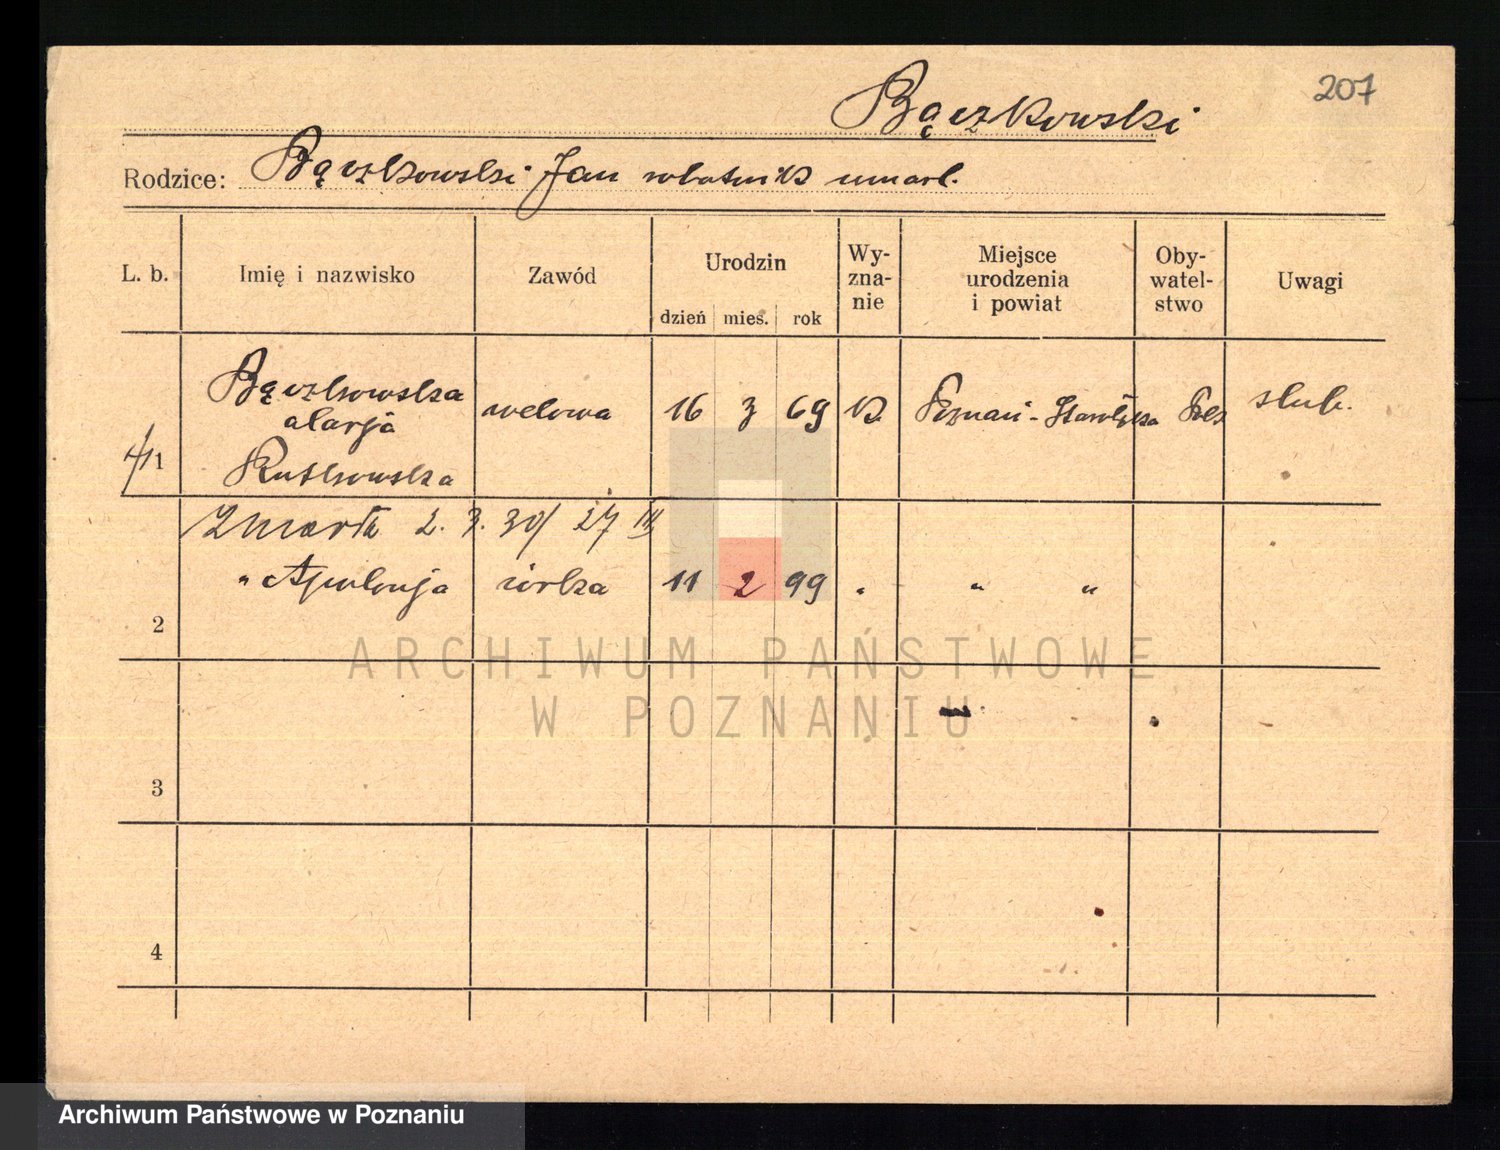 207
Bączkowski
Rodzice: Bączkowski Jan robotnik umarł.
L. b. Imię i nazwisko Zawód Urodzin dzień mies. rok Wy-zna-nie Miejsce urodzenia i powiat Oby-watel-stwo Uwagi
1 Bączkowska wdowa 16 3 69 K. Poznań - Starołęka Pol. ślub.
Marja
Rutkowska
Zmarła 2. 3. 30/ 27 III
2 " Apolonja córka 11 2 99 " " "
3
4
ARCHIWUM PAŃSTWOWE
W POZNANIU
Archiwum Państwowe w Poznaniu